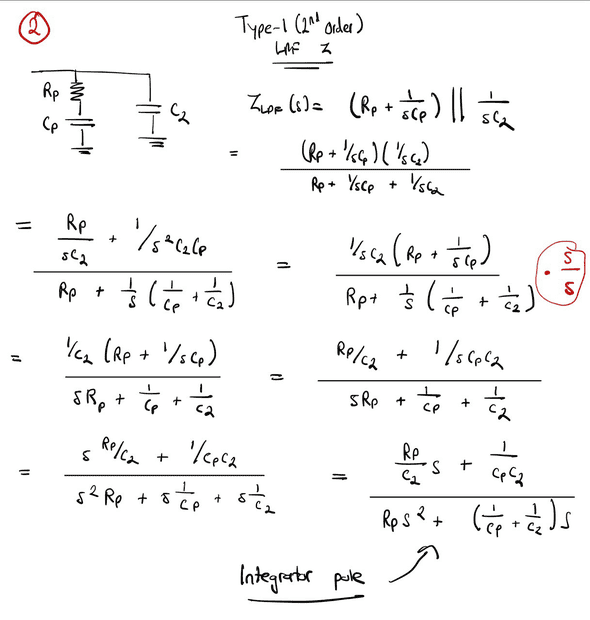 2
Type-1 (2nd Order)
LPF Z
Rp
Cp
C2
Z_LPF(s) = (Rp + 1/sCp) || 1/sC2
= (Rp + 1/sCp)(1/sC2) / (Rp + 1/sCp + 1/sC2)
= (Rp/sC2 + 1/s²C2Cp) / (Rp + 1/s (1/Cp + 1/C2)) = 1/sC2 (Rp + 1/sCp) / (Rp + 1/s (1/Cp + 1/C2)) · s/s
= 1/C2 (Rp + 1/sCp) / (sRp + 1/Cp + 1/C2) = (Rp/C2 + 1/sCpC2) / (sRp + 1/Cp + 1/C2)
= (s Rp/C2 + 1/CpC2) / (s²Rp + s 1/Cp + s 1/C2) = (Rp/C2 s + 1/CpC2) / (Rps² + (1/Cp + 1/C2)s)
Integrator pole